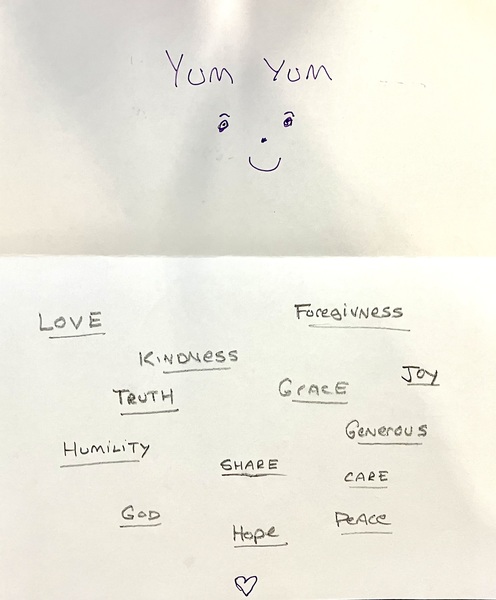 Yum Yum
LOVE Foregivness
KINDNESS
TRUTH GRACE JOY
GENEROUS
HUMILITY SHARE CARE
GOD Hope PEACE